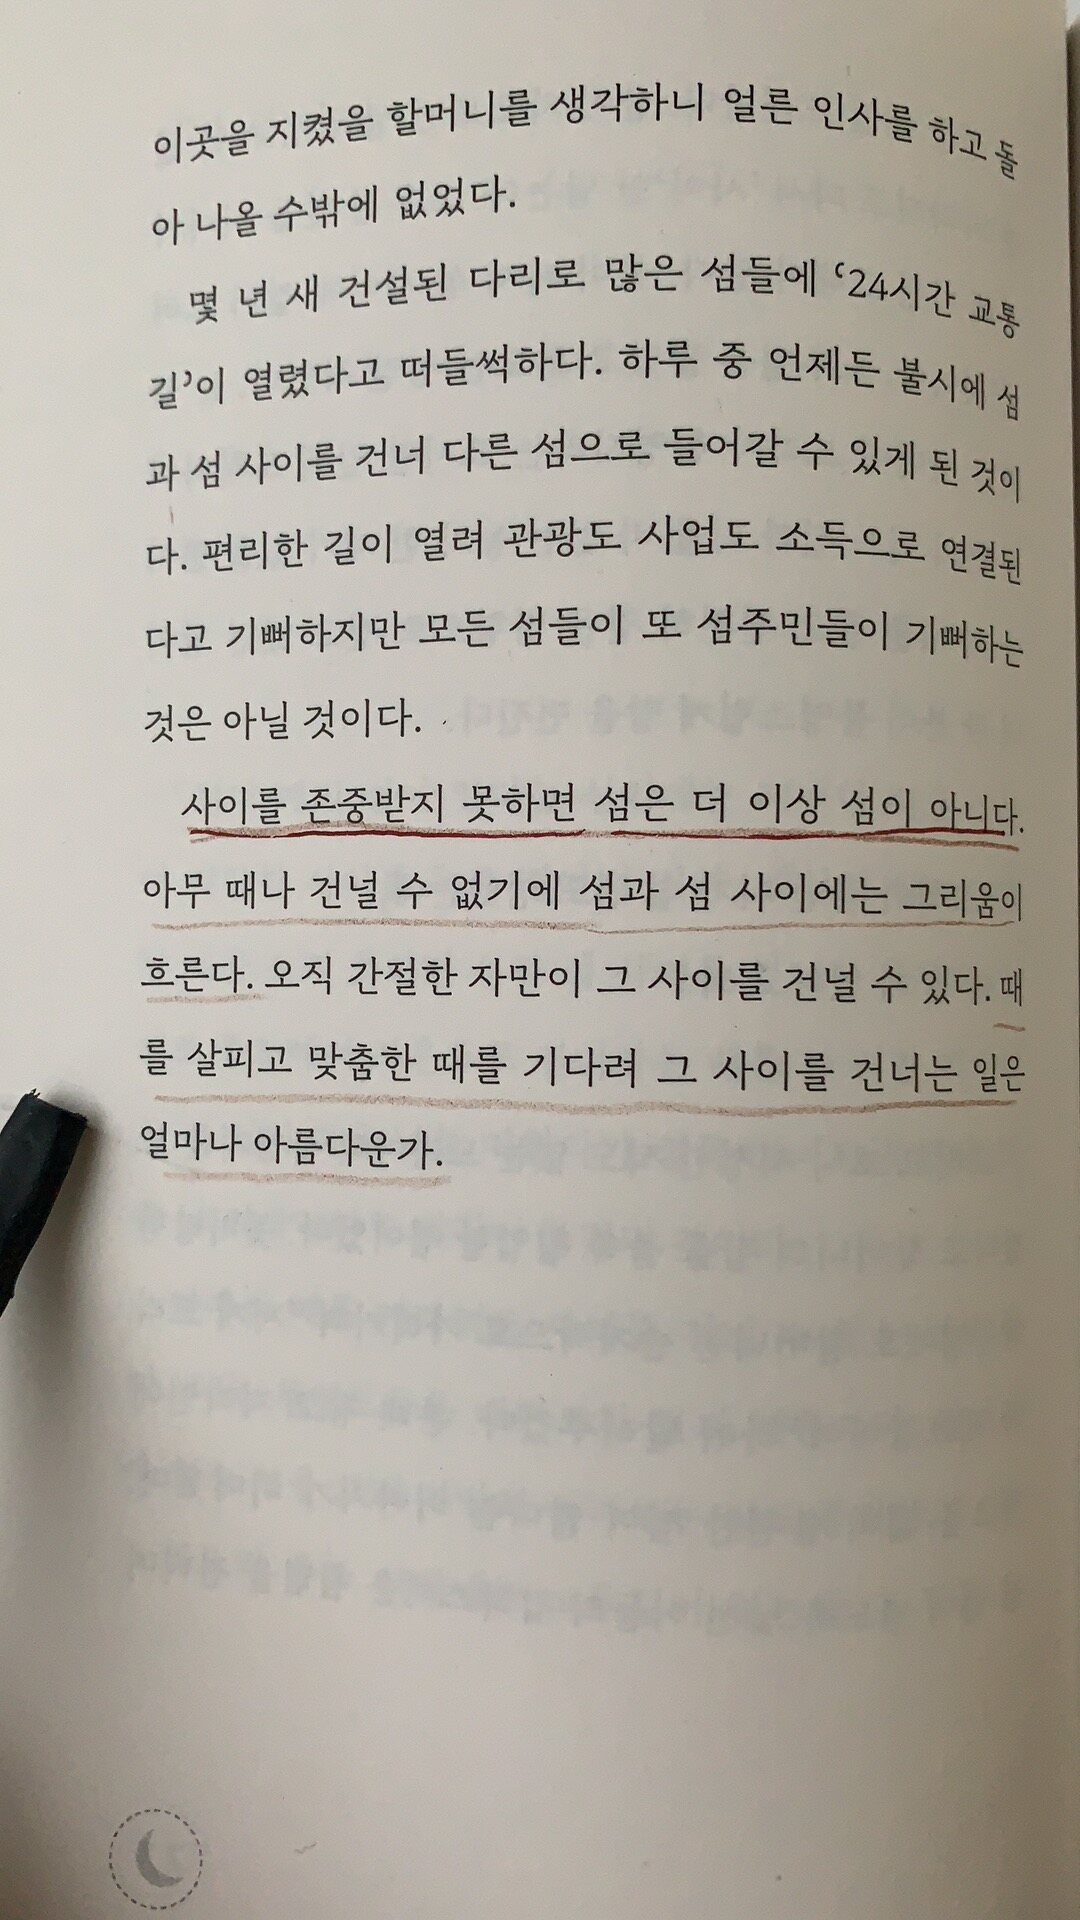 이곳을 지켰을 할머니를 생각하니 얼른 인사를 하고 돌
아 나올 수밖에 없었다.
몇 년 새 건설된 다리로 많은 섬들에 ‘24시간 교통
길’이 열렸다고 떠들썩하다. 하루 중 언제든 불시에 섬
과 섬 사이를 건너 다른 섬으로 들어갈 수 있게 된 것이
다. 편리한 길이 열려 관광도 사업도 소득으로 연결된
다고 기뻐하지만 모든 섬들이 또 섬주민들이 기뻐하는
것은 아닐 것이다.
사이를 존중받지 못하면 섬은 더 이상 섬이 아니다.
아무 때나 건널 수 없기에 섬과 섬 사이에는 그리움이
흐른다. 오직 간절한 자만이 그 사이를 건널 수 있다. 때
를 살피고 맞춤한 때를 기다려 그 사이를 건너는 일은
얼마나 아름다운가.